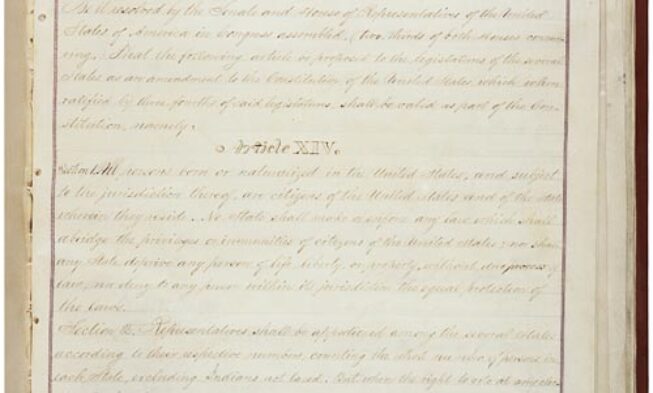 Be it resolved by the Senate and House of Representatives of the United
States of America in Congress assembled, (two thirds of both Houses concur-
ring,) That the following article be proposed to the legislatures of the several
States as an amendment to the Constitution of the United States, which, when
ratified by three fourths of said legislatures, shall be valid as part of the Con-
stitution, namely:
Article XIV.
Section 1. All persons born or naturalized in the United States, and subject
to the jurisdiction thereof, are citizens of the United States and of the State
wherein they reside. No State shall make or enforce any law which shall
abridge the privileges or immunities of citizens of the United States; nor shall
any State deprive any person of life, liberty, or property, without due process of
law, nor deny to any person within its jurisdiction the equal protection of
the laws.
Section 2. Representatives shall be apportioned among the several States
according to their respective numbers, counting the whole number of persons in
each State, excluding Indians not taxed. But when the right to vote at any elec-